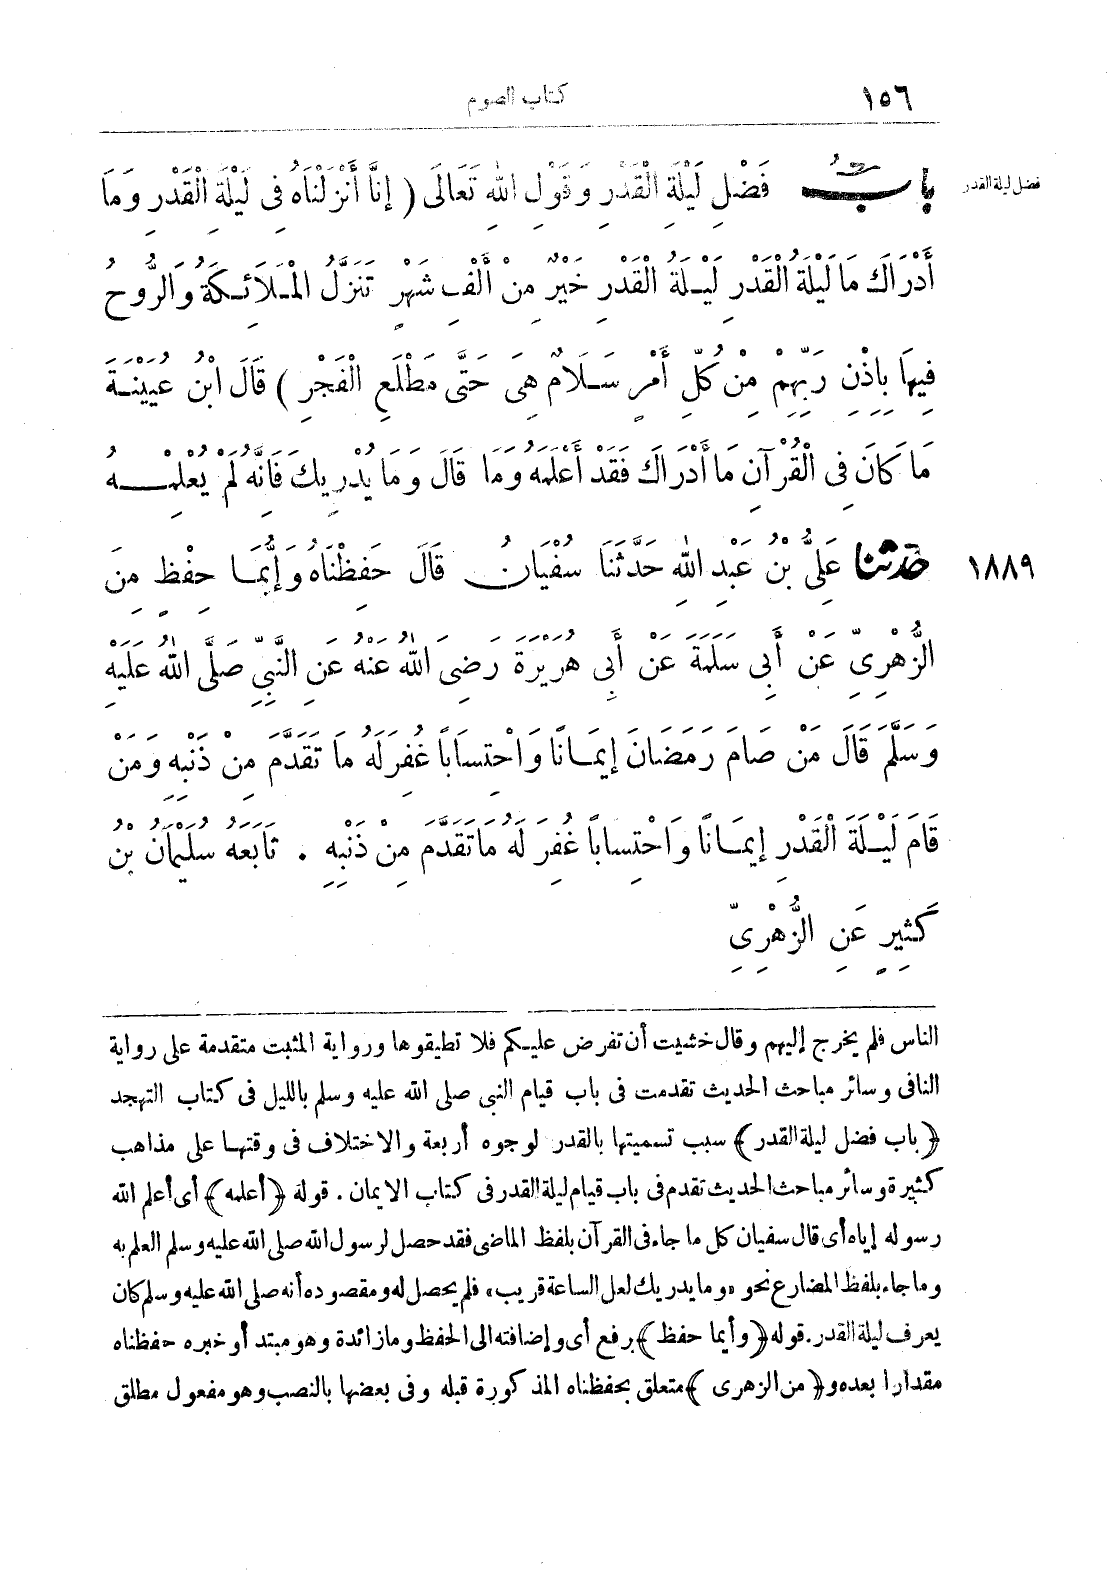 ١٥٦ كتاب الصوم
بابُ فَضْلِ لَيْلَةِ الْقَدْرِ وَقَوْلِ اللهِ تَعَالَى ( إِنَّا أَنْزَلْنَاهُ فِى لَيْلَةِ الْقَدْرِ وَمَا
فضل ليلة القدر
أَدْرَاكَ مَا لَيْلَةُ الْقَدْرِ لَيْلَةُ الْقَدْرِ خَيْرٌ مِنْ أَلْفِ شَهْرٍ تَنَزَّلُ الْمَلَائِكَةُ وَالرُّوحُ
فِيهَا بِإِذْنِ رَبِّهِمْ مِنْ كُلِّ أَمْرٍ سَلَامٌ هِىَ حَتَّى مَطْلَعِ الْفَجْرِ ) قَالَ ابْنُ عُيَيْنَةَ
مَا كَانَ فِى الْقُرْآنِ مَا أَدْرَاكَ فَقَدْ أَعْلَمَهُ وَمَا قَالَ وَمَا يُدْرِيكَ فَإِنَّهُ لَمْ يُعْلِمْهُ
١٨٨٩ حَدَّثَنَا عَلِىُّ بْنُ عَبْدِ اللهِ حَدَّثَنَا سُفْيَانُ قَالَ حَفِظْنَاهُ وَأَيُّمَا حِفْظٍ مِنَ
الزُّهْرِىِّ عَنْ أَبِى سَلَمَةَ عَنْ أَبِى هُرَيْرَةَ رَضِىَ اللهُ عَنْهُ عَنِ النَّبِىِّ صَلَّى اللهُ عَلَيْهِ
وَسَلَّمَ قَالَ مَنْ صَامَ رَمَضَانَ إِيمَانًا وَاحْتِسَابًا غُفِرَ لَهُ مَا تَقَدَّمَ مِنْ ذَنْبِهِ وَمَنْ
قَامَ لَيْلَةَ الْقَدْرِ إِيمَانًا وَاحْتِسَابًا غُفِرَ لَهُ مَا تَقَدَّمَ مِنْ ذَنْبِهِ . تَابَعَهُ سُلَيْمَانُ بْنُ
كَثِيرٍ عَنِ الزُّهْرِىِّ
الناس فلم يخرج إليهم وقال خشيت أن تفرض عليكم فلا تطيقوها ورواية المثبت متقدمة على رواية
النافى وسائر مباحث الحديث تقدمت فى باب قيام النبى صلى الله عليه وسلم بالليل فى كتاب التهجد
﴿باب فضل ليلة القدر﴾ سبب تسميتها بالقدر لوجوه أربعة والاختلاف فى وقتها على مذاهب
كثيرة وسائر مباحث الحديث تقدم فى باب قيام ليلة القدر فى كتاب الايمان . قوله ﴿أعلمه﴾ أى أعلم الله
رسوله إياه أى قال سفيان كل ما جاء فى القرآن بلفظ الماضى فقد حصل لرسول الله صلى الله عليه وسلم العلم به
وما جاء بلفظ المضارع نحو «وما يدريك لعل الساعة قريب» فلم يحصل له ومقصوده أنه صلى الله عليه وسلم كان
يعرف ليلة القدر. قوله ﴿وأيما حفظ﴾ برفع أى وإضافته الى الحفظ وما زائدة وهو مبتدأ وخبره حفظناه
مقدارا بعده و﴿من الزهرى﴾ متعلق بحفظناه المذكورة قبله وفى بعضها بالنصب وهو مفعول مطلق